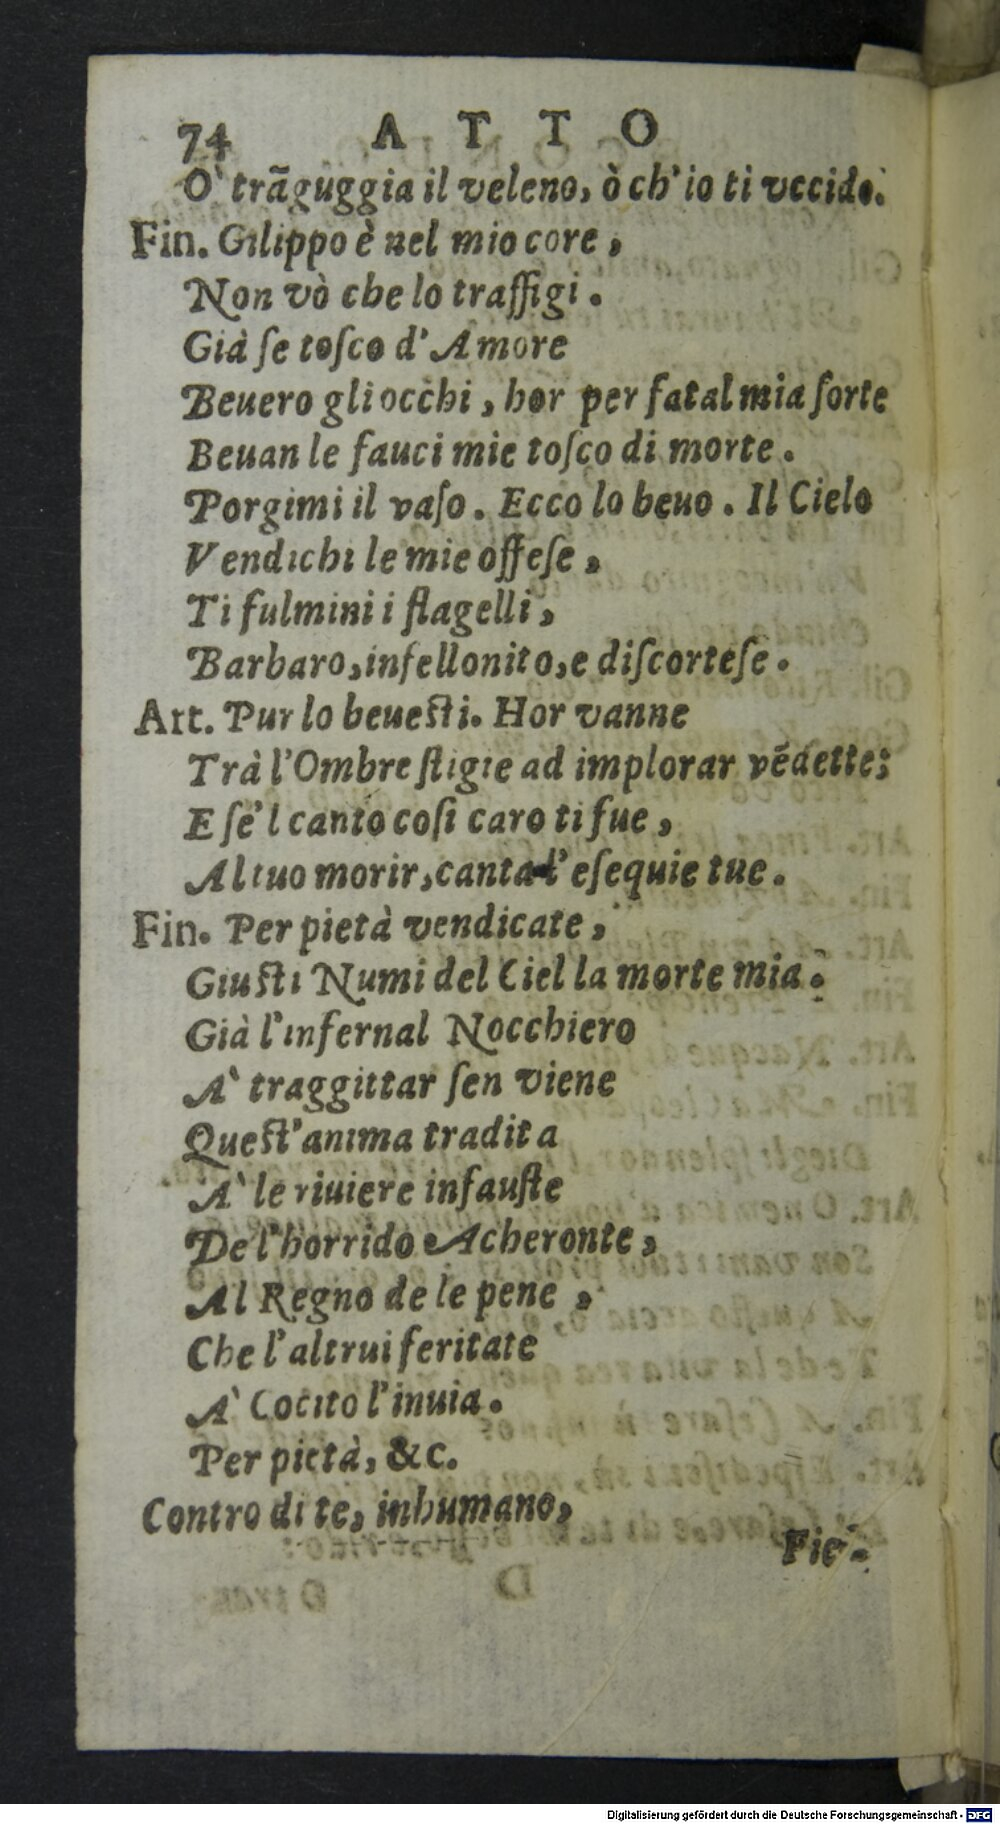 74 ATTO
O' trāguggia il veleno, ò ch'io ti vccido.
Fin. Gilippo è nel mio core,
Non vò che lo traffigi.
Già ſe toſco d'Amore
Beuero gli occhi, hor per fatal mia ſorte
Beuan le fauci mie toſco di morte.
Porgimi il vaſo. Ecco lo beuo. Il Cielo
Vendichi le mie offeſe,
Ti fulmini i flagelli,
Barbaro, infellonito, e diſcorteſe.
Art. Pur lo beueſti. Hor vanne
Trà l'Ombre ſtigie ad implorar vēdette;
E ſe'l canto coſi caro ti fue,
Al tuo morir, canta l'eſequie tue.
Fin. Per pietà vendicate,
Giuſti Numi del Ciel la morte mia.
Già l'infernal Nocchiero
A' traggittar ſen viene
Queſt'anima tradita
A' le riuiere infauſte
De l'horrido Acheronte,
Al Regno de le pene,
Che l'altrui feritate
A' Cocito l'inuia.
Per pietà, &c.
Contro di te, inhumano,
Fie-
Digitalisierung gefördert durch die Deutsche Forschungsgemeinschaft - DFG